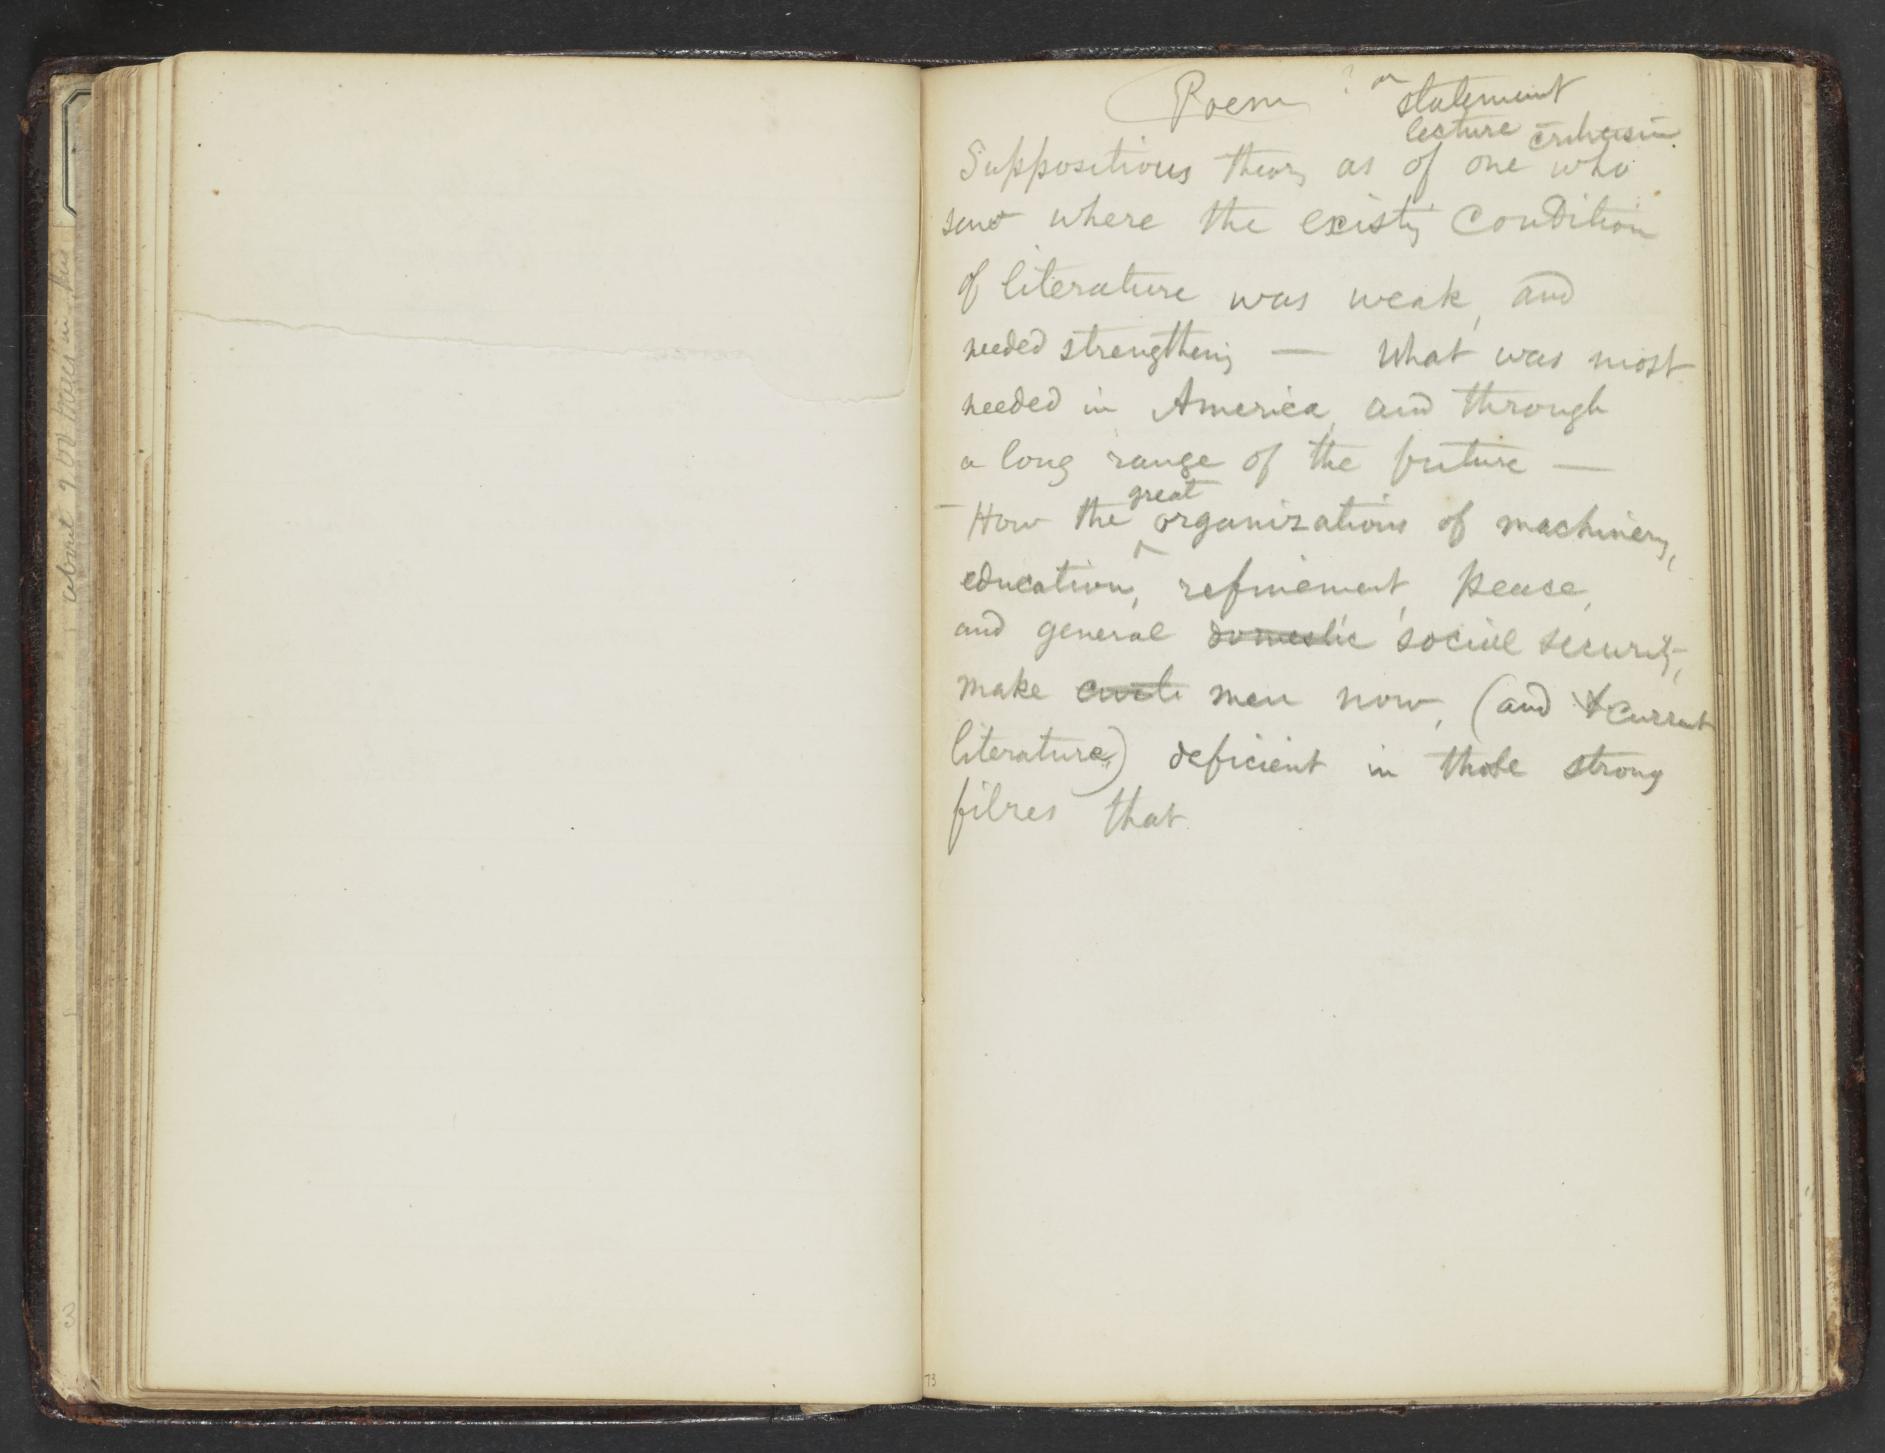 Poem ? or statement
lecture criticism.
Suppositious theory as of one who
saw where the existing condition
of literature was weak, and
needed strengthening — What was most
needed in America, and through
a long range of the future —
— How the great organizations of machinery,
education, refinement, peace,
and general domestic social security,
make men now, (and current
literature) deficient in those strong
fibres that
73